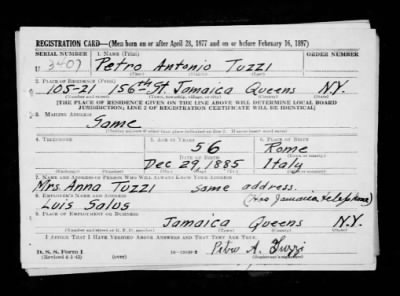 REGISTRATION CARD—(Men born on or after April 28, 1877 and on or before February 16, 1897)
SERIAL NUMBER 1. NAME (Print) ORDER NUMBER
U 3407 Petro Antonio Tuzzi
(First) (Middle) (Last)
2. PLACE OF RESIDENCE (Print)
105-21 156th St Jamaica Queens N.Y.
(Number and street) (Town, township, village, or city) (County) (State)
[THE PLACE OF RESIDENCE GIVEN ON THE LINE ABOVE WILL DETERMINE LOCAL BOARD
JURISDICTION; LINE 2 OF REGISTRATION CERTIFICATE WILL BE IDENTICAL]
3. MAILING ADDRESS
Same
[Mailing address if other than place indicated on line 2. If same insert word same]
4. TELEPHONE 5. AGE IN YEARS 6. PLACE OF BIRTH
56 Rome
DATE OF BIRTH (Town or county)
Dec 29, 1885 Italy
(Exchange) (Number) (Mo.) (Day) (Yr.) (State or country)
7. NAME AND ADDRESS OF PERSON WHO WILL ALWAYS KNOW YOUR ADDRESS
Mrs Anna Tuzzi same address.
8. EMPLOYER'S NAME AND ADDRESS (Jamaica telephone)
Luis Salvs
9. PLACE OF EMPLOYMENT OR BUSINESS
Jamaica Queens N.Y.
(Number and street or R. F. D. number) (Town) (County) (State)
I AFFIRM THAT I HAVE VERIFIED ABOVE ANSWERS AND THAT THEY ARE TRUE.
D. S. S. Form 1 Petro A. Tuzzi
(Revised 4-1-42) (over) (Registrant's signature)